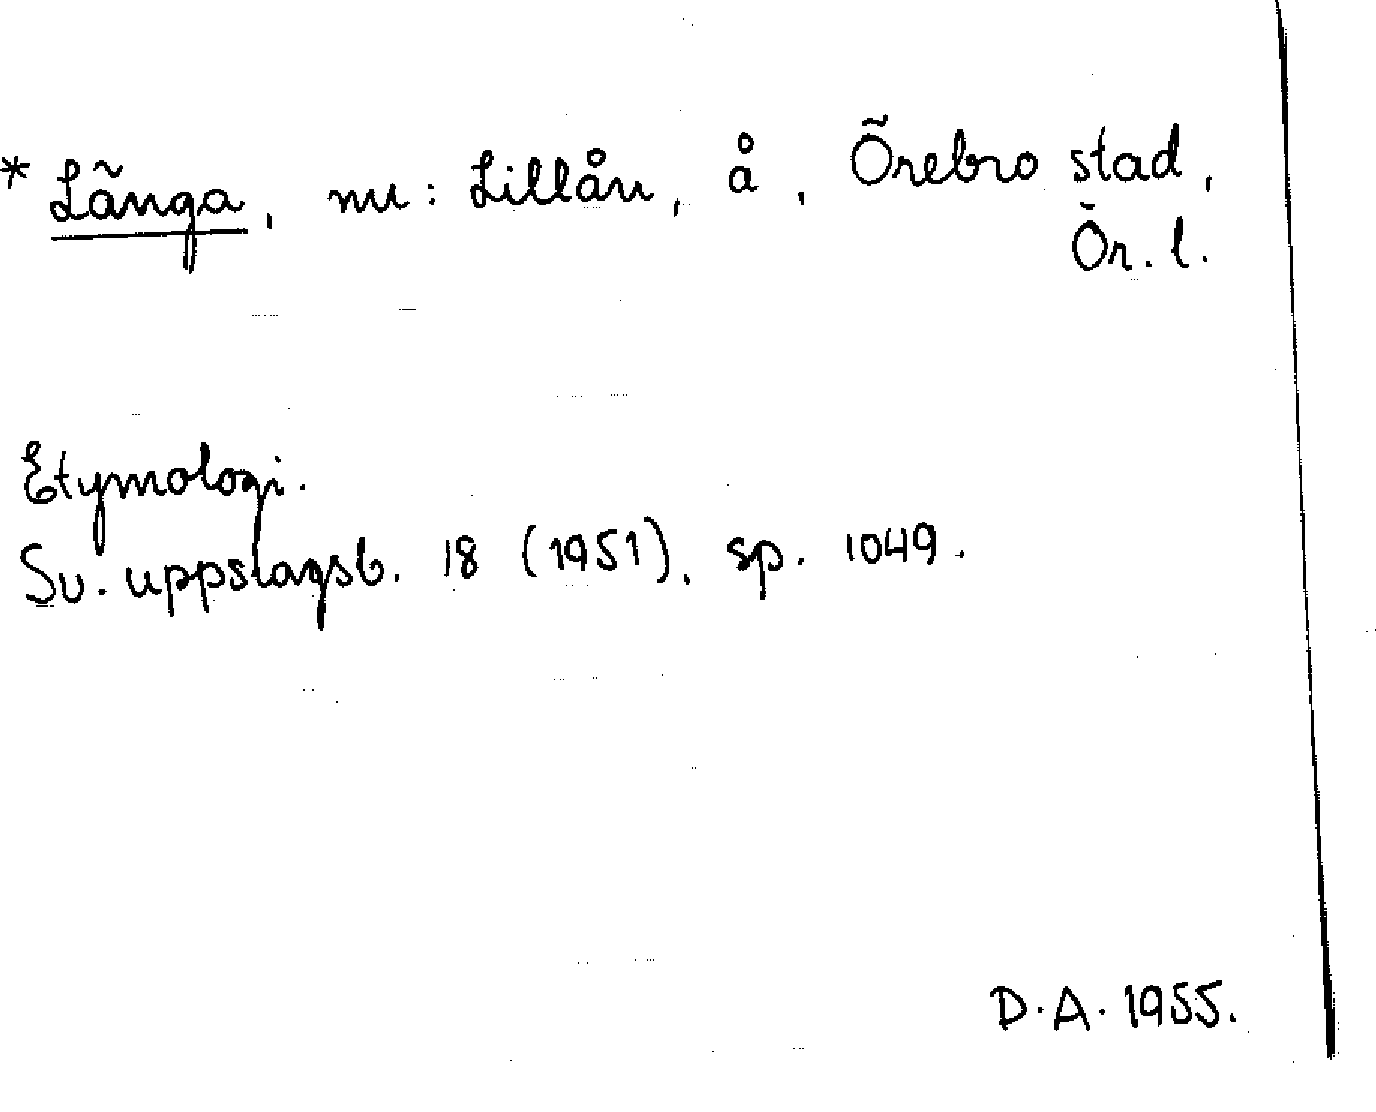 * Länga, nu: Lillån, å, Örebro stad,
Ör. l.
Etymologi.
Sv. uppslagsb. 18 (1951), sp. 1049.
D.A. 1955.